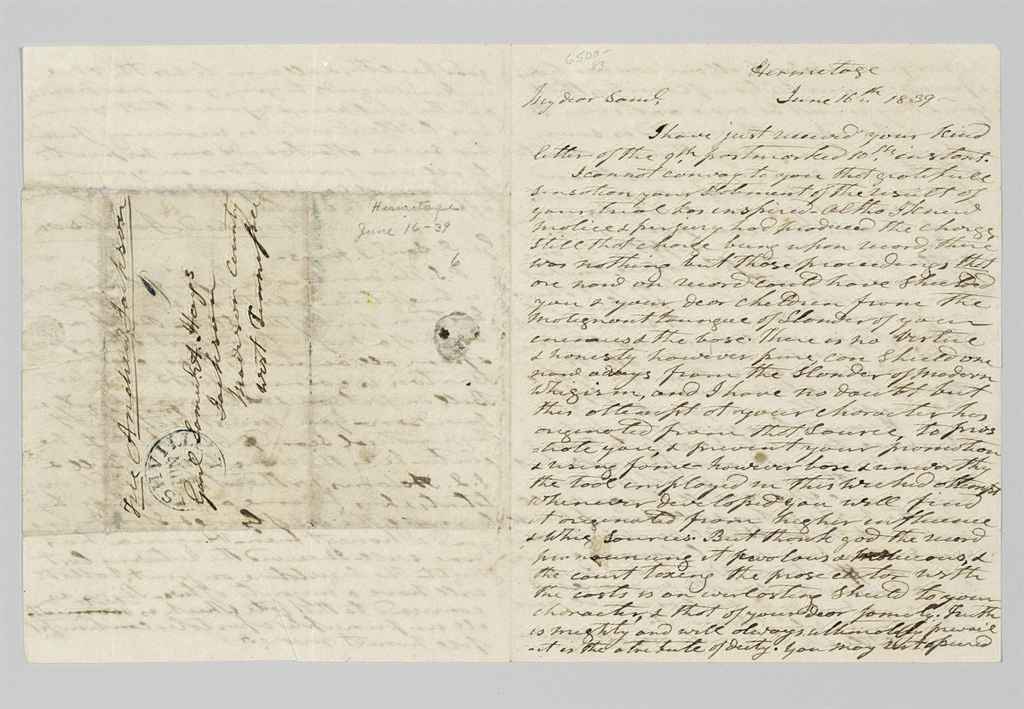 Free Andrew Jackson
Genl. Samuel J. Hays
Jackson
Madison County
West Tennessee
NASHVILLE
Hermitage
June 16-39
6
6500-
83
Hermitage
June 16th 1839-
My dear Saml,
I have just received your kind
letter of the 9th, postmarked 10th instant.
I cannot convey to you that gratefull
sensation your statement of the result of
your trial has inspired. Altho I knew
malice & perjury had produced the charge,
still that charge being upon record, there
was nothing but those proceedings that
are now on record could have shielded
you & your dear children from the
malignant tongue of slander of your
enemies & the base. There is no virtue
& honesty however pure, can shield one
now adays from the slander of modern
Whigism, and I have no doubt but
this attempt at your character has
originated from that source, to pros
trate you, & prevent your promotion
& rising fame however base & unworthy
the tool employed in this wicked attempt
whenever developed you will find
it originated from higher influence
& Whig sources. But thank god the record
pronouncing it frivolous & malicious, &
the court taxing the prosecutor with
the costs is an everlasting shield to your
character, & that of your dear family. Truth
is mighty and will always ultimately prevail
it is the atribute of diety. You may rest assured